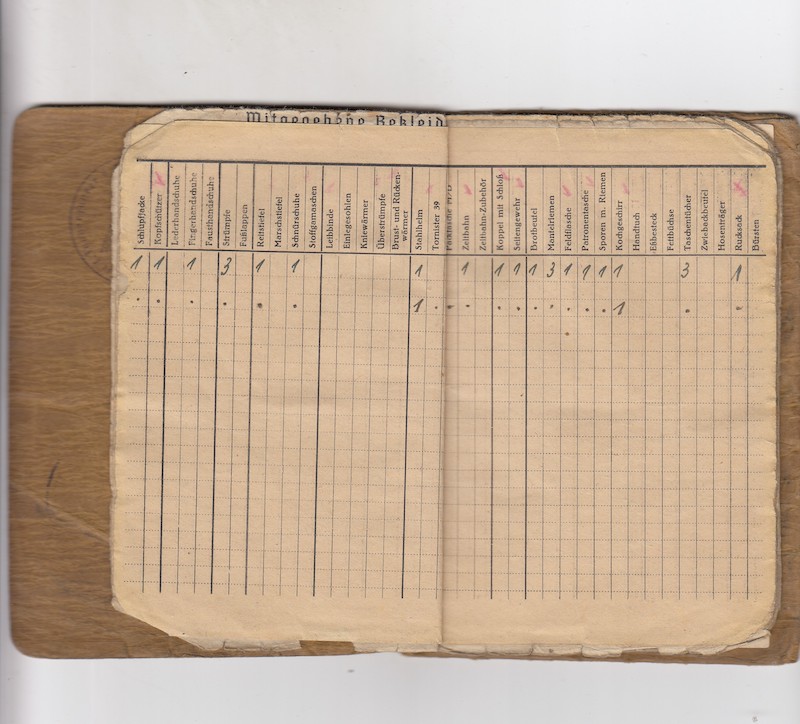 Mitgegebene Bekleid
Schlupfjacke
Kopfschützer
Lederhandschuhe
Fingerhandschuhe
Fausthandschuhe
Strümpfe
Fußlappen
Reitstiefel
Marschstiefel
Schnürschuhe
Stoffgamaschen
Leibbinde
Einlegesohlen
Kniewärmer
Überstrümpfe
Brust- und Rücken-
wärmer
Stahlhelm
Tornister 39
Zeltbahn
Zeltbahn-Zubehör
Koppel mit Schloß
Seitengewehr
Brotbeutel
Mantelriemen
Feldflasche
Patronentasche
Sporen m. Riemen
Kochgeschirr
Handtuch
Eßbesteck
Fettbüchse
Taschentücher
Zwiebackbeutel
Hosenträger
Rucksack
Bürsten
1 1 1 3 1 1 1 1 1 1 1 3 1 1 1 1 3 1
1 1